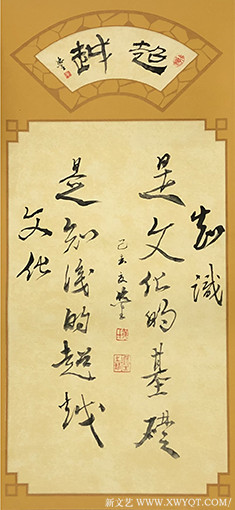 超越
知識
是文化的基礎
文化
是知識的超越
己亥
新文艺 WWW.XWYQT.COM/